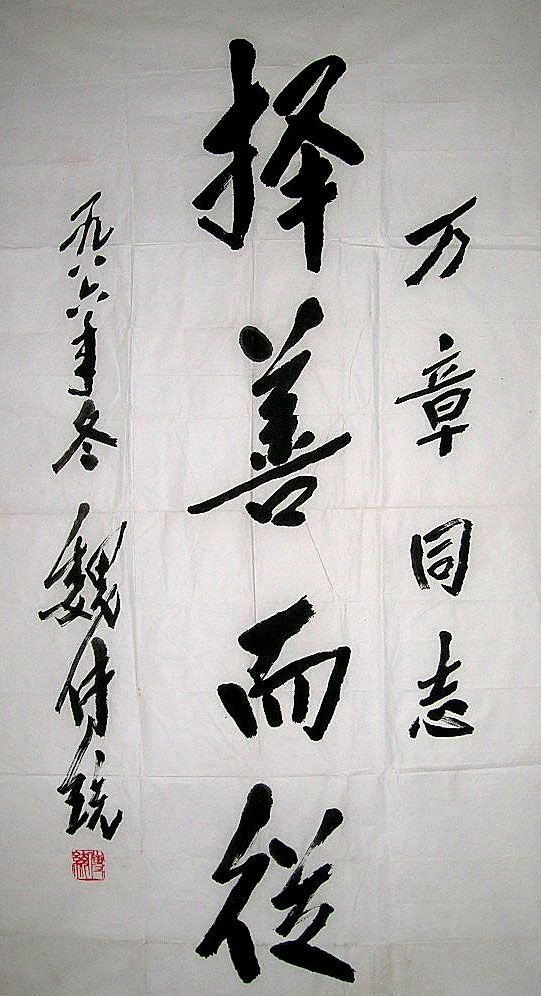 万章同志
择善而従
一九八六年冬 魏传统